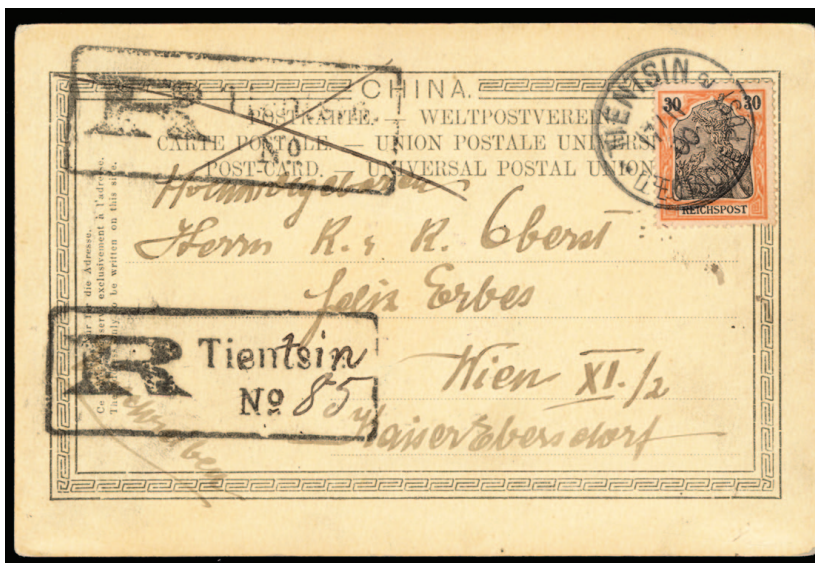 CHINA.
POSTKARTE. — WELTPOSTVEREIN
CARTE POSTALE. — UNION POSTALE UNIVERS
POST-CARD. — UNIVERSAL POSTAL UNION
R
No
30 30
REICHSPOST
TIENTSIN
DEUTSCHE
Hochwohlgeboren
Herrn K. u. K. Oberst
Felix Erbes
Wien XI./2
Kaiser Ebersdorf
R Tientsin
No 85
für die Adresse.
exclusivement à l'adresse.
to be written on this side.